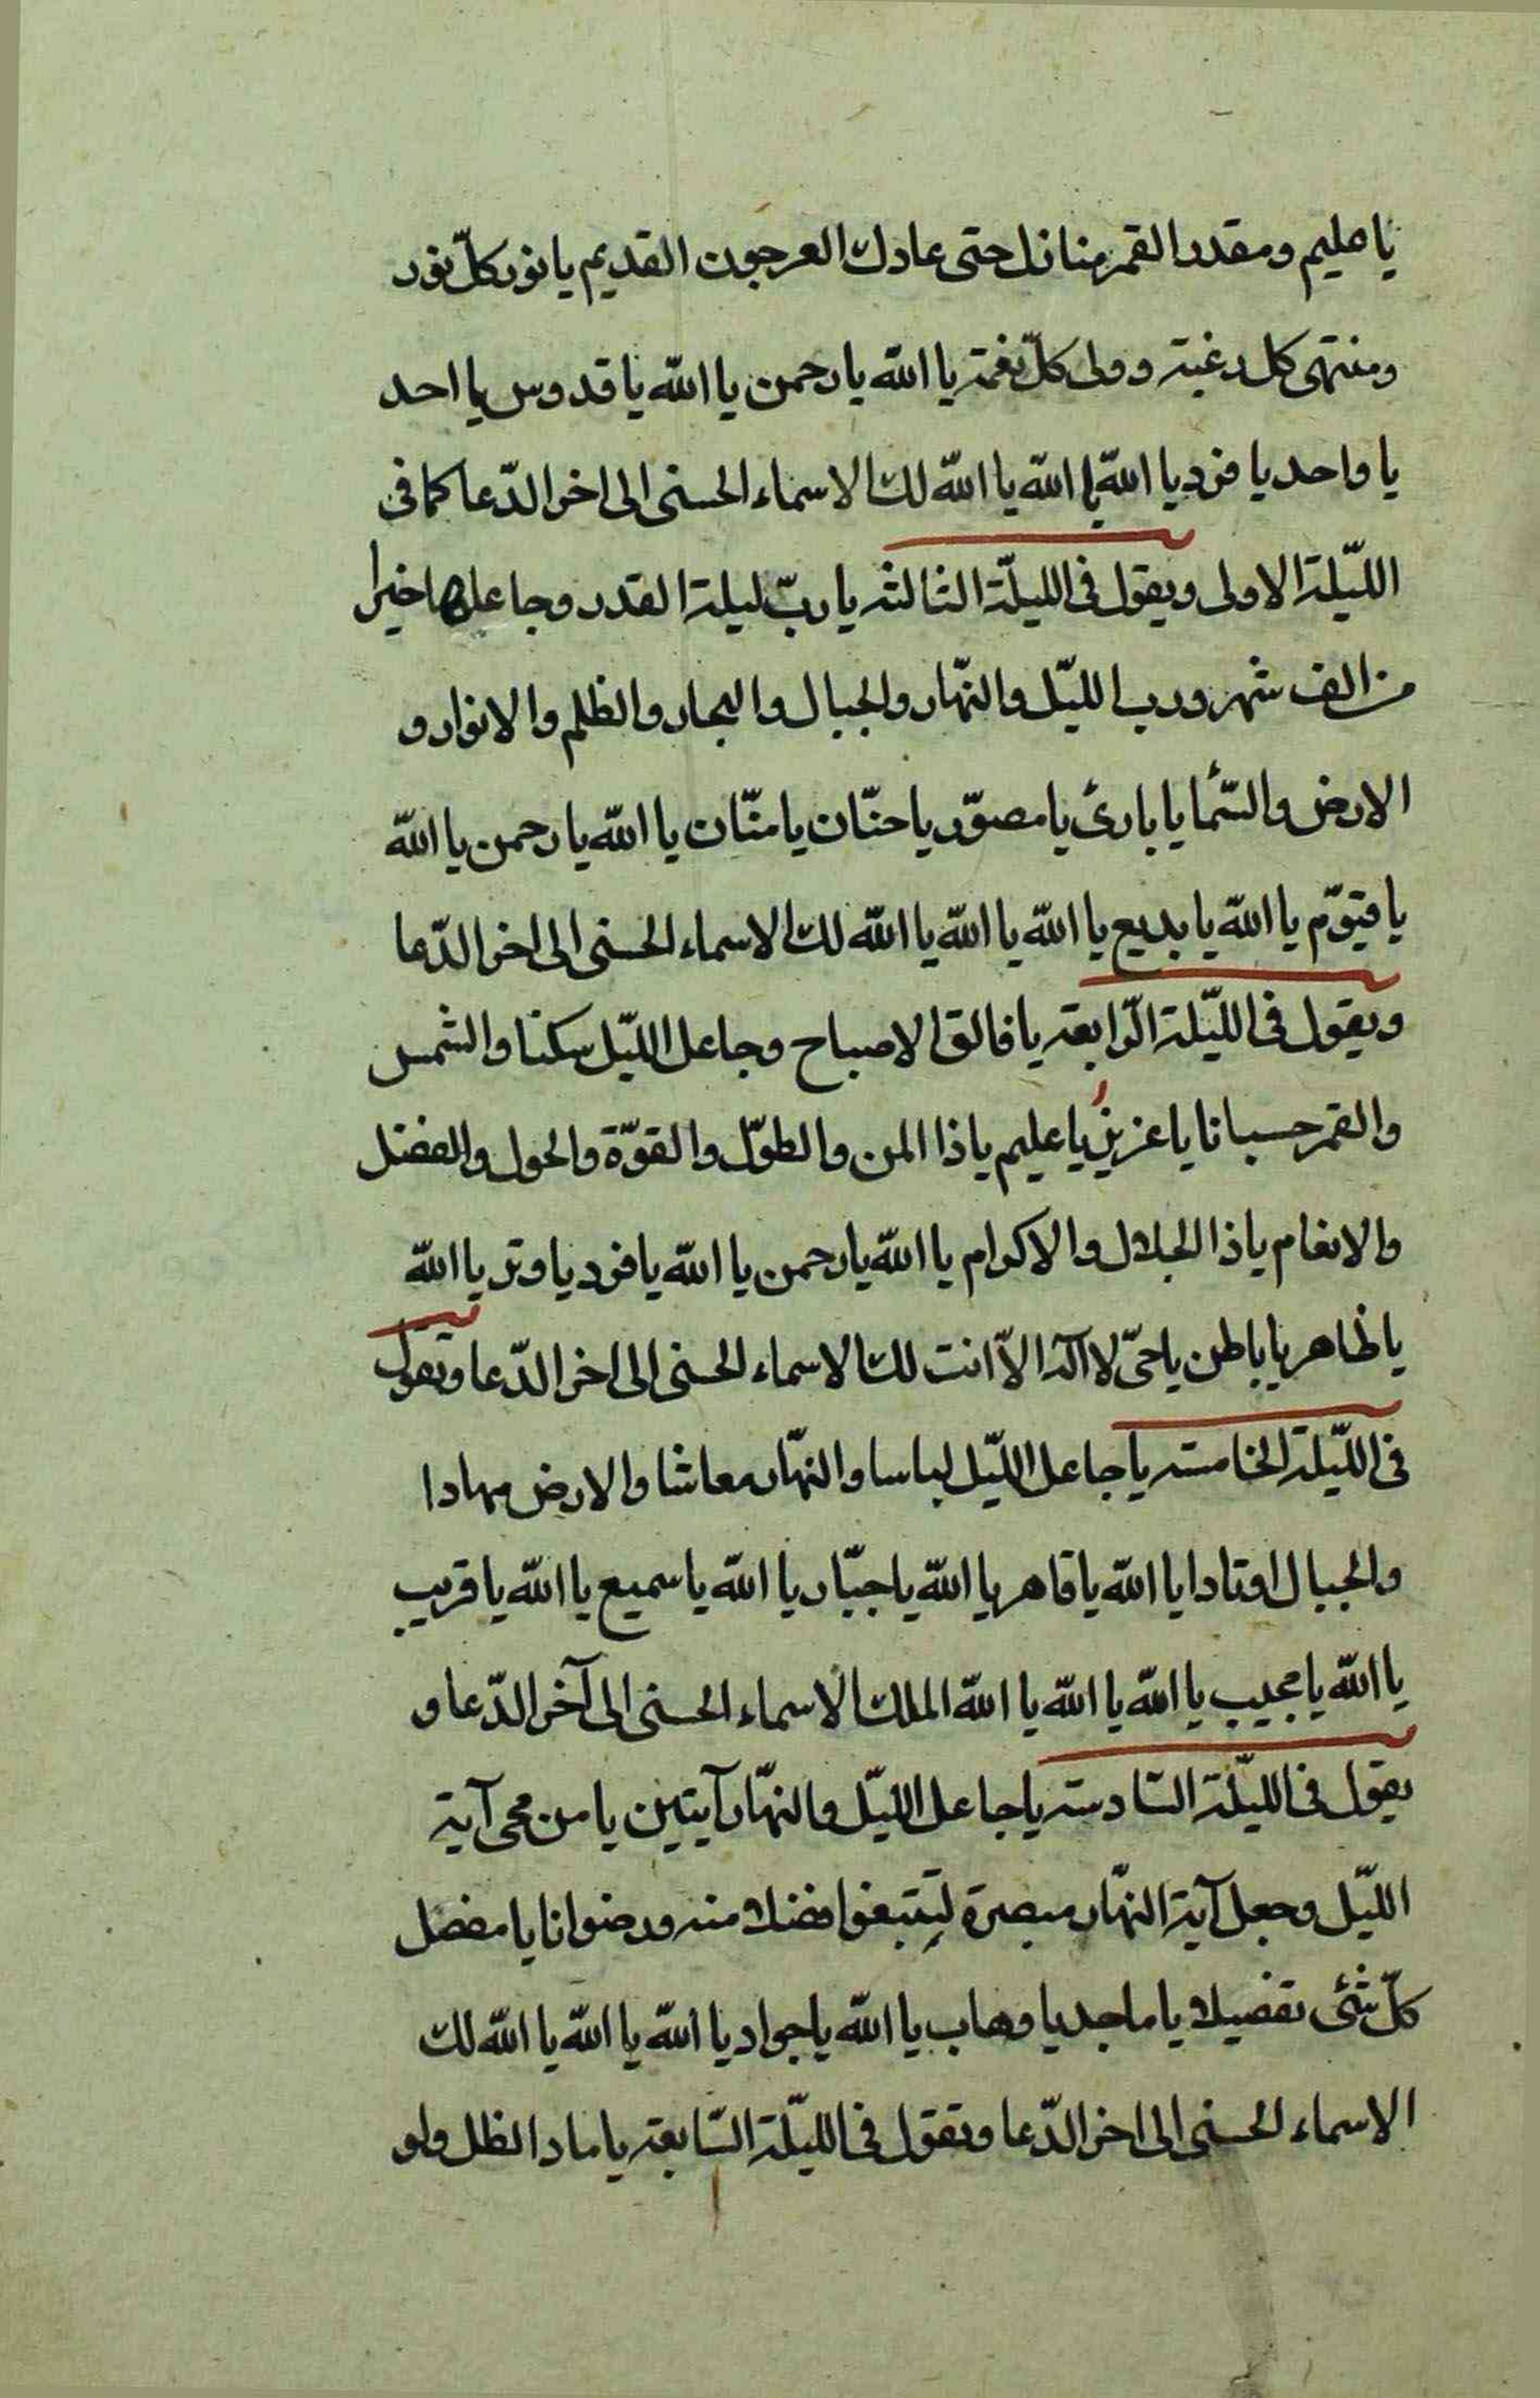 يا عليم ومقدر القمر منازل حتى عاد كالعرجون القديم يا نور كلّ نور
ومنتهى كل رغبة وولى كلّ نعمة يا الله يا رحمن يا الله يا قدوس يا احد
يا واحد يا فرد يا الله يا الله يا الله لك الاسماء الحسنى الى اخر الدّعا كما فى
اللّيلة الاولى ويقول فى الليلّة الثالثه يا ربّ ليلة القدر وجاعلها خيرا
من الف شهر ورب الليّل والنهّار والجبال والبحار والظلم والانوار و
الارض والسّمأ يا بارئ يا مصوّر يا حنّان يا منّان يا الله يا رحمن يا الله
يا قيّوم يا الله يا بديع يا الله يا الله يا الله لك الاسماء الحسنى الى اخر الدّعا
ويقول فى اللّيلة الرّابعة يا فالق الاصباح وجاعل اللّيل سكنا والشمس
والقمر حسبانا يا عزيز يا عليم يا ذا المن والطوّل والقوّة والحول والفضل
والانعام يا ذا الجلال والاكرام يا الله يا رحمن يا الله يا فرد يا وتر يا الله
يا ظاهر يا باطن يا حىّ لا اله الاّ انت لك الاسماء الحسنى الى اخر الدّعا ويقول
فى اللّيلة الخامسه يا جاعل اللّيل لباسا والنهّار معاشا والارض مهادا
والجبال اوتادا يا الله يا قاهر يا الله يا جبّار يا الله يا سميع يا الله يا قريب
يا الله يا مجيب يا الله يا الله يا الله الملك الاسماء الحسنى الى آخر الدّعا و
يقول فى اللّيلة السّادسه يا جاعل اللّيل والنهّار آيتين يا من محى آية
اللّيل وجعل آية النهّار مبصرة لتبتغوا فضلا منه ورضوانا يا مفصل
كلّ شئى تفصيلا يا ماجد يا وهاب يا الله يا جواد يا الله يا الله يا الله لك
الاسماء الحسنى الى اخر الدّعا وتقول فى اللّيلة السّابعة يا ماد الظل ولو